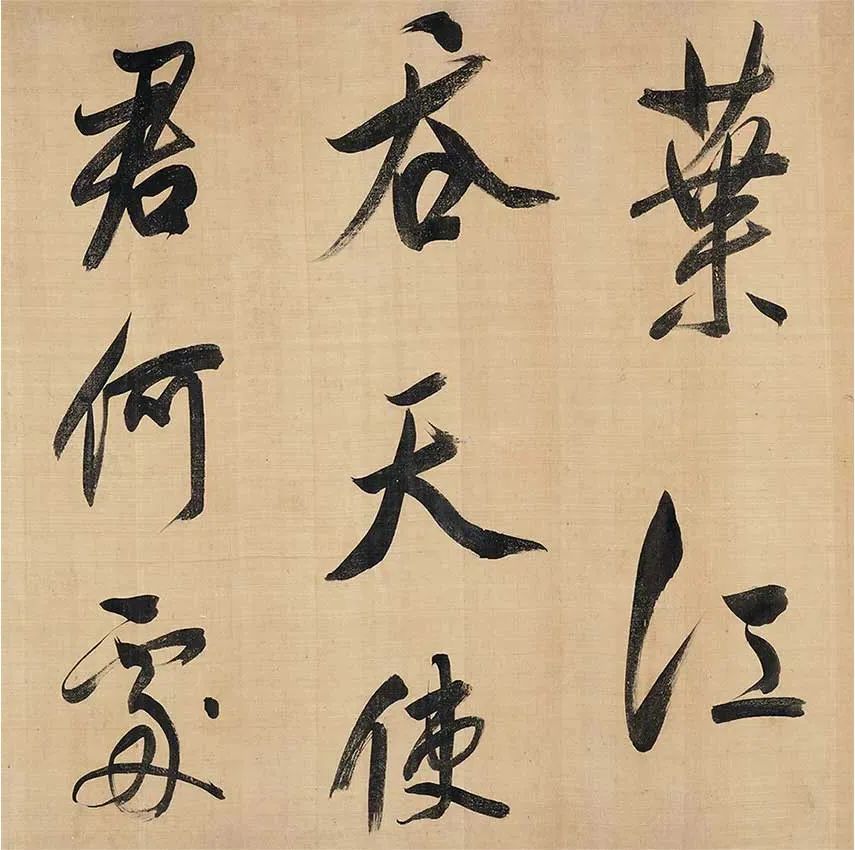 葉江
吞天使
君何處